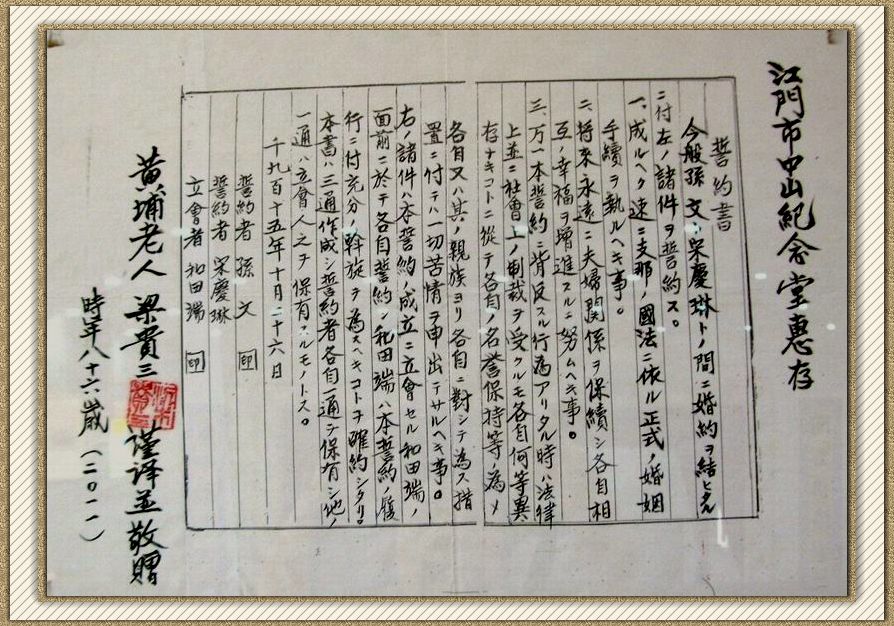 江門市中山紀念堂惠存
誓約書
今般孫文ト宋慶琳トノ間ニ婚約ヲ結ヒタル
ニ付左ノ諸件ヲ誓約ス。
一、成ルヘク速ニ支那ノ國法ニ依ル正式ノ婚姻
手續ヲ執ルヘキ事。
二、将來永遠ニ夫婦関係ヲ保續シ各自相
互ノ幸福ヲ增進スルニ努ムヘキ事。
三、万一本誓約ニ背反スル行為アリタル時ハ法律
上並ニ社會上ノ制裁ヲ受クルモ各自何等異
存ナキコトニ從テ各自ノ名誉保持等ノ為メ
各自又ハ其ノ親族ヨリ各自ニ對シテ為ス措
置ニ付テハ一切苦情ヲ申出テサルヘキ事。
右ノ諸件ハ本誓約ノ成立ニ立會セル和田端ノ
面前ニ於テ各自誓約シ和田端ハ本誓約ノ履
行ニ付充分ノ斡旋ヲ為スヘキコトヲ確約シタリ。
本書ハ三通作成シ誓約者各自一通ヲ保有シ他ノ
一通ハ立會人之ヲ保有スルモノトス。
千九百十五年十月二十六日
誓約者 孫文 印
誓約者 宋慶琳
立會者 和田端 印
黃埔老人 梁貴三 謹译並敬贈
時年八十六歲(二〇一一)